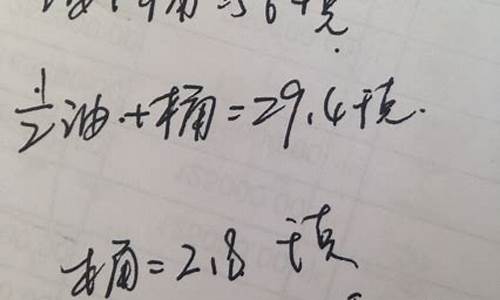 油+桶=56千克.
½油+桶=29.4千克.
桶=2.8 千克